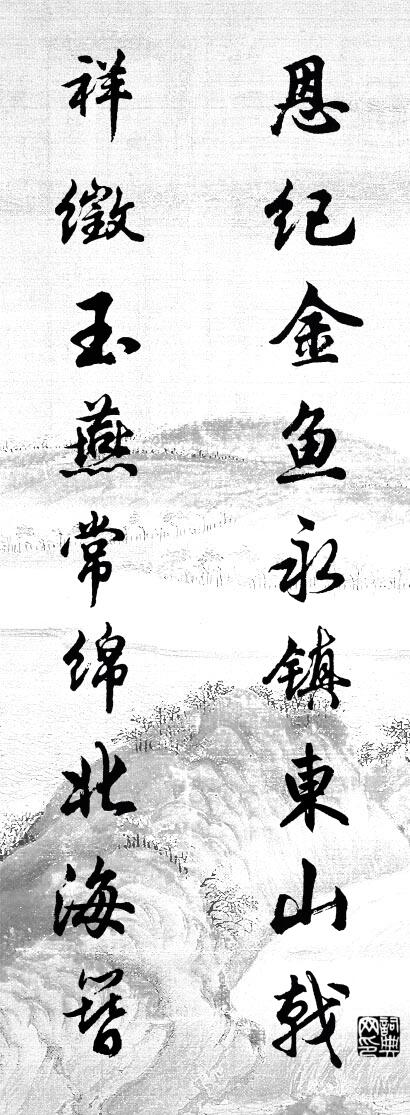 恩纪金鱼永镇東山戟
祥徵玉燕常绵北海簪
詞典
网印